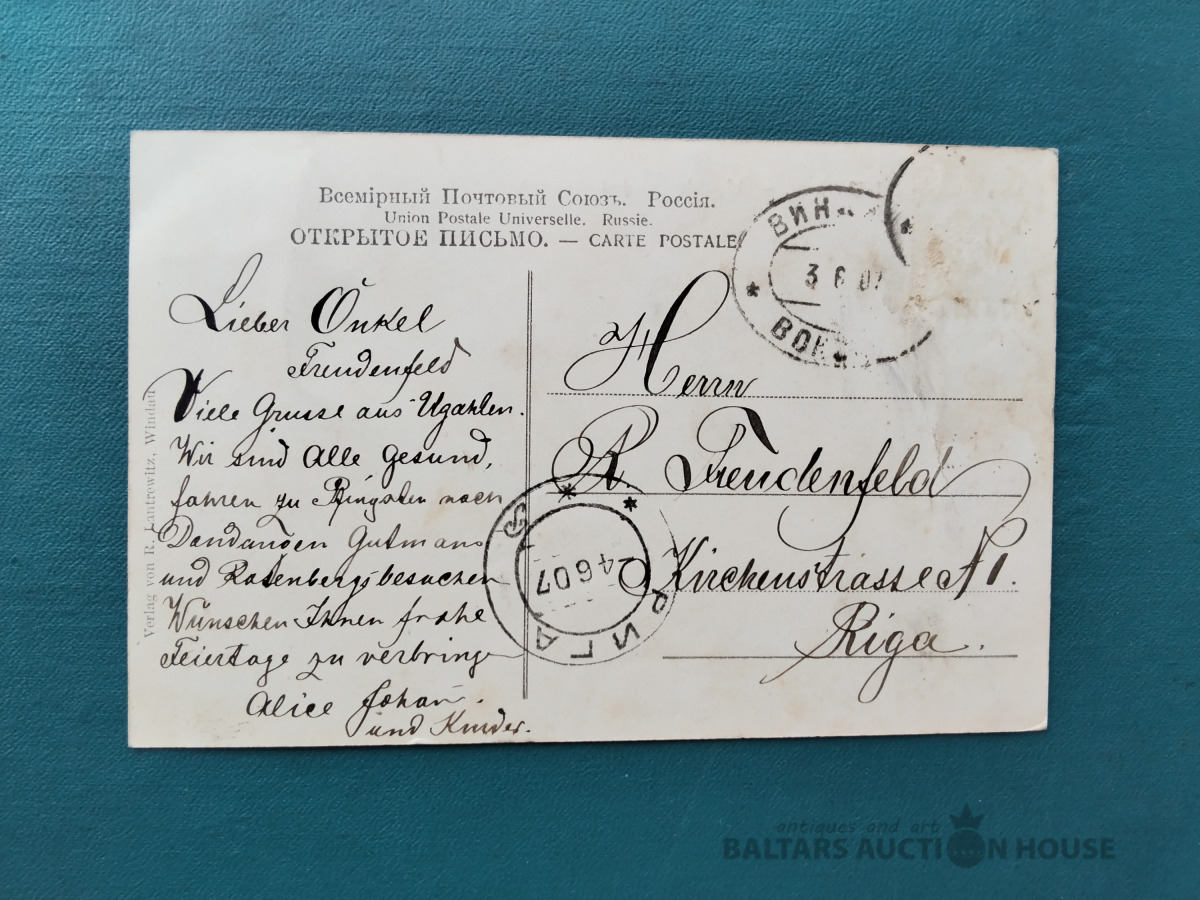 Всемірный Почтовый Союзъ. Россія.
Union Postale Universelle. Russie.
ОТКРЫТОЕ ПИСЬМО. — CARTE POSTALE
Lieber Onkel
Freudenfeld
Viele Grüsse aus Ugahlen.
Wir sind Alle gesund,
fahren zu Pfingsten nach
Dondangen Gutmans
und Rosenbergs besuchen
Wünschen Ihnen frohe
Feiertage zu verbringen
Alice Johan
und Kinder.
Verlag von R. Lantrewitz, Windau
Herrn
R. Freudenfeld
Kirchenstrasse № 1.
Riga.
ВИН
3 6 07
ВОК
РИГА
24 6 07
antiques and art
BALTARS AUCTION HOUSE